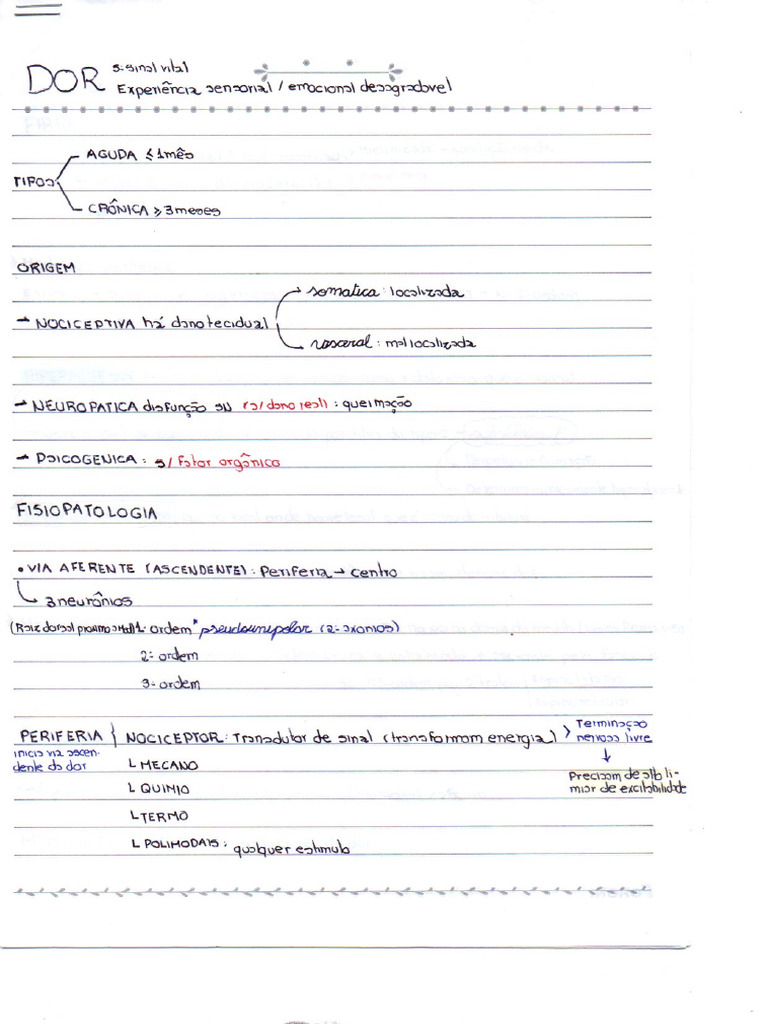 DOR 5º sinal vital
Experiência sensorial / emocional desagradável
TIPOS
AGUDA ≤ 1 mês
CRÔNICA ≥ 3 meses
ORIGEM
→ NOCICEPTIVA há dano tecidual
somatica : localizada
visceral : mal localizada
→ NEUROPATICA disfunção SN (s/ dano real) : queimação
→ PSICOGENICA : s/ fator orgânico
FISIOPATOLOGIA
• VIA AFERENTE (ASCENDENTE) : Periferia → centro
↳ 3 neurônios
(Raiz dorsal 1ª ordem * pseudounipolar (2 axonios)
2ª ordem
3ª ordem
PERIFERIA { NOCICEPTOR : Transdutor de sinal (transformam energia) > Terminação nervosa livre
inicio via ascendente da dor
↓
Precisam de alto limiar de excitabilidade
L MECANO
L QUIMIO
L TERMO
L POLIMODAIS : qualquer estimulo